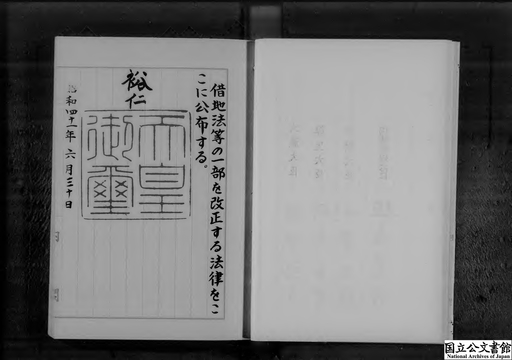 借地法等の一部を改正する法律をこ
こに公布する。
裕仁
天皇
御璽
昭和四十一年六月三十日
国立公文書館
National Archives of Japan